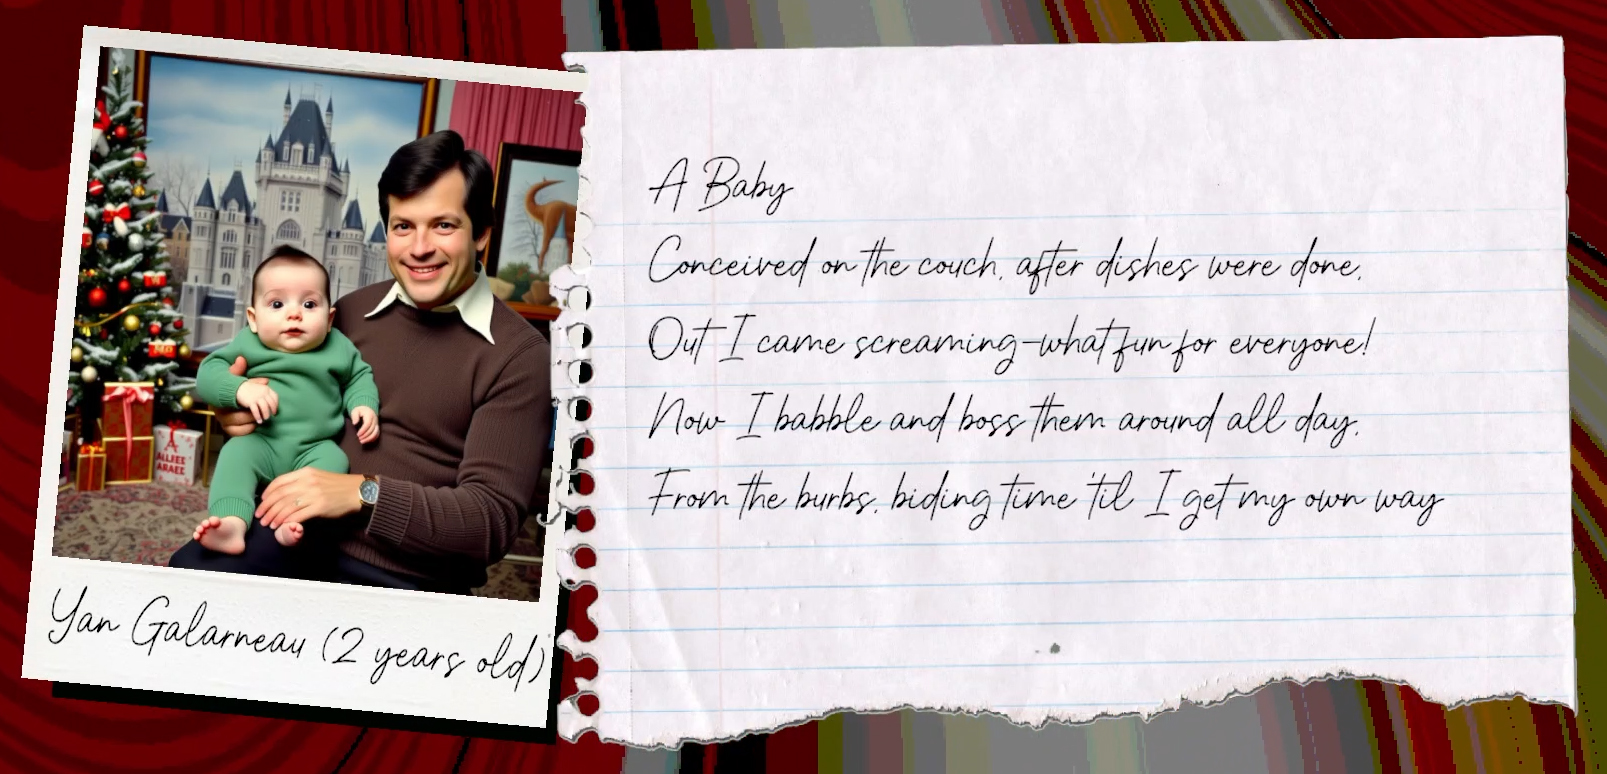 A Baby
Conceived on the couch, after dishes were done,
Out I came screaming—what fun for everyone!
Now I babble and boss them around all day,
From the burbs, biding time 'til I get my own way
Yan Galarneau (2 years old)